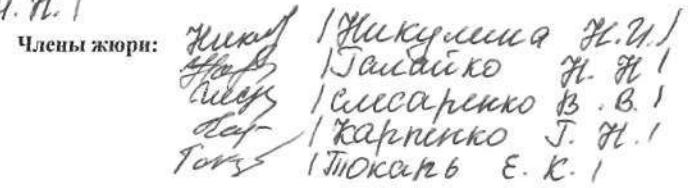 Н. П. /
Члены жюри: /Никулина Н.И./
/Галайко Н. Н/
/Слесаренко В. В./
/Карпенко Г. Н./
/Токань Е. К./